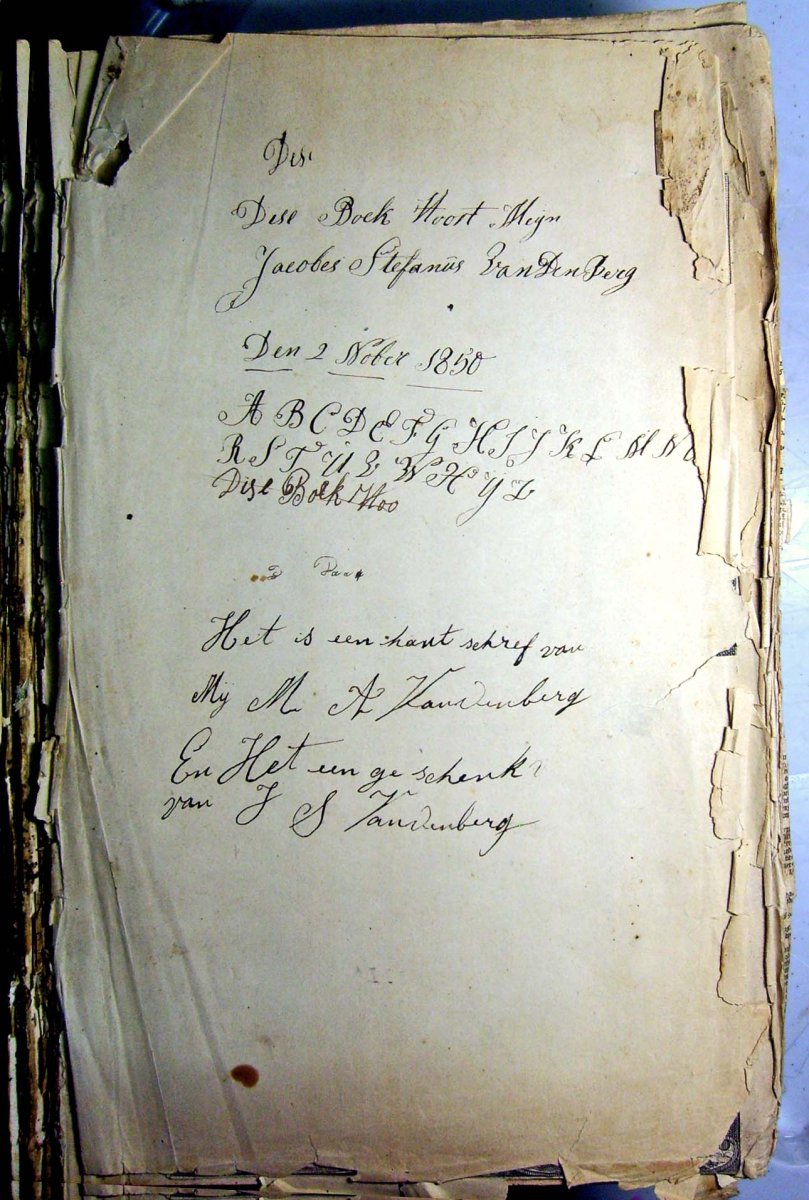 Dise
Dise Boek Hoort Mijn
Jacobes Stefanüs Van Den Berg
Den 2 Nober 1850
A B C D E F G H I J K L M N O
R S T U V W H Y Z
Dise Boek Hoo
Het is een hant schref van
Mij M A Vandenberg
En Het een ge schenk
van J S Vandenberg